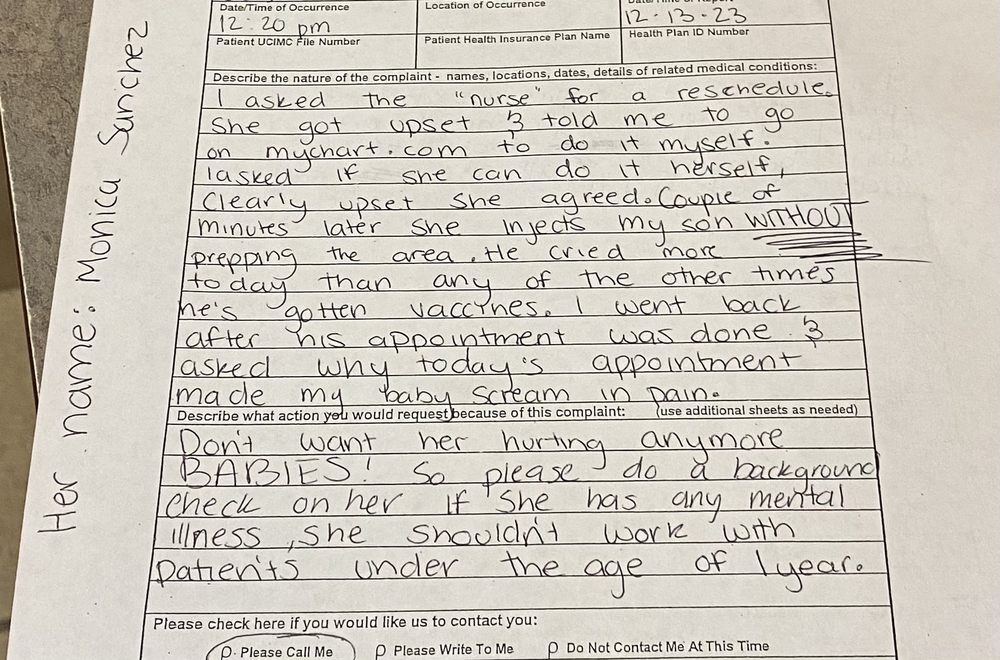 Date/Time of Occurrence
12:20 pm
Location of Occurrence
12-13-23
Patient UCIMC File Number
Patient Health Insurance Plan Name
Health Plan ID Number
Describe the nature of the complaint - names, locations, dates, details of related medical conditions:
I asked the "nurse" for a reschedule.
She got upset & told me to go
on mychart.com to do it myself.
I asked if she can do it herself,
Clearly upset she agreed. Couple of
minutes later she injects my son WITHOUT
prepping the area. He cried more
today than any of the other times
he's gotten vaccines. I went back
after his appointment was done &
asked why today's appointment
made my baby scream in pain.
Describe what action you would request because of this complaint: (use additional sheets as needed)
Don't want her hurting anymore
BABIES! So please do a background
check on her if she has any mental
illness, she shouldn't work with
patients under the age of 1 year.
Please check here if you would like us to contact you:
Please Call Me
Please Write To Me
Do Not Contact Me At This Time
Her name: Monica Sanchez